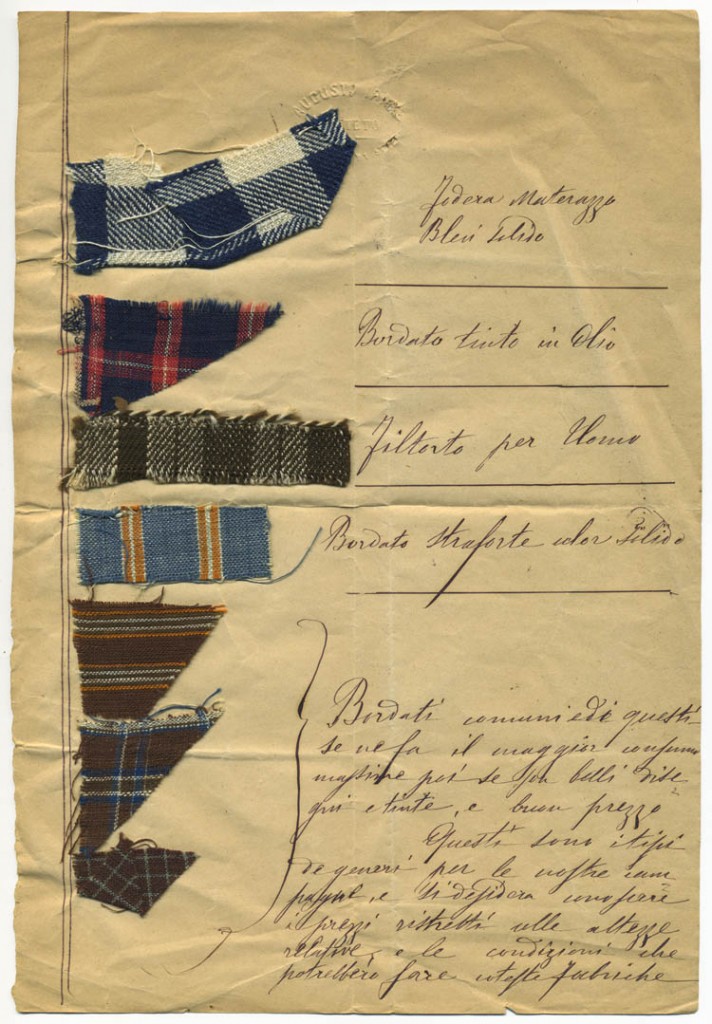 AUGUSTO
Fodera Materazzo
Bleu Solido
Bordato tinto in Olio
Filtorto per Uomo
Bordato Straforte color Solido
Bordati comuni e di questi
se ne fa il maggior consumo
massime poi se son belli dise
gni e tinte, e buon prezzo
Questi sono i tipi
de generi per le nostre cam
pagne, e si desidera conoscere
i prezzi ristretti colle altezze
relative, e le condizioni che
potrebbero fare coteste Fabriche